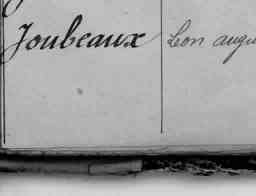 Joubeaux Leon augu